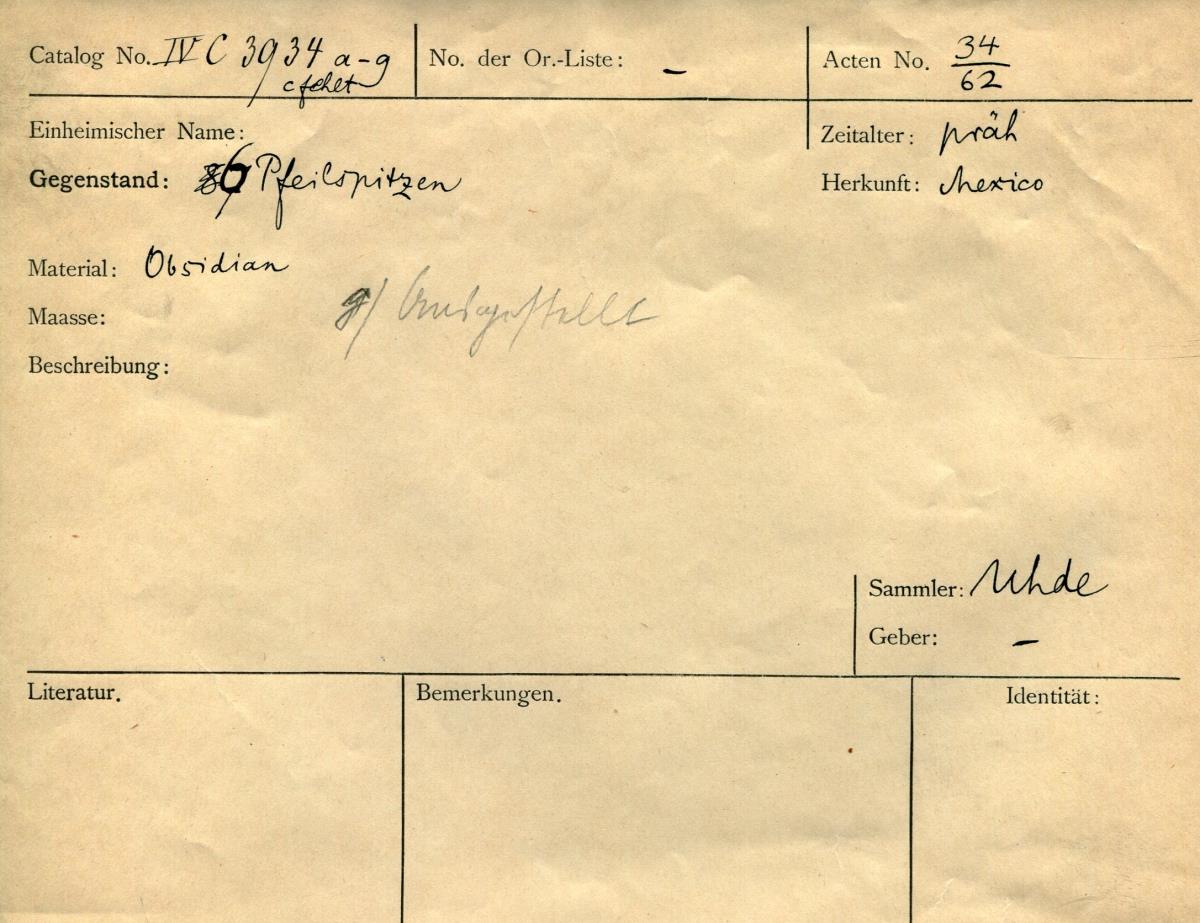 Catalog No. IV C 3934 a-g
c fehlt
No. der Or.-Liste: –
Acten No. 34/62
Einheimischer Name:
Zeitalter: präh
Gegenstand: 6 Pfeilspitzen
Herkunft: Mexico
Material: Obsidian
g/ Ausgestellt
Maasse:
Beschreibung:
Sammler: Uhde
Geber: –
Literatur.
Bemerkungen.
Identität: